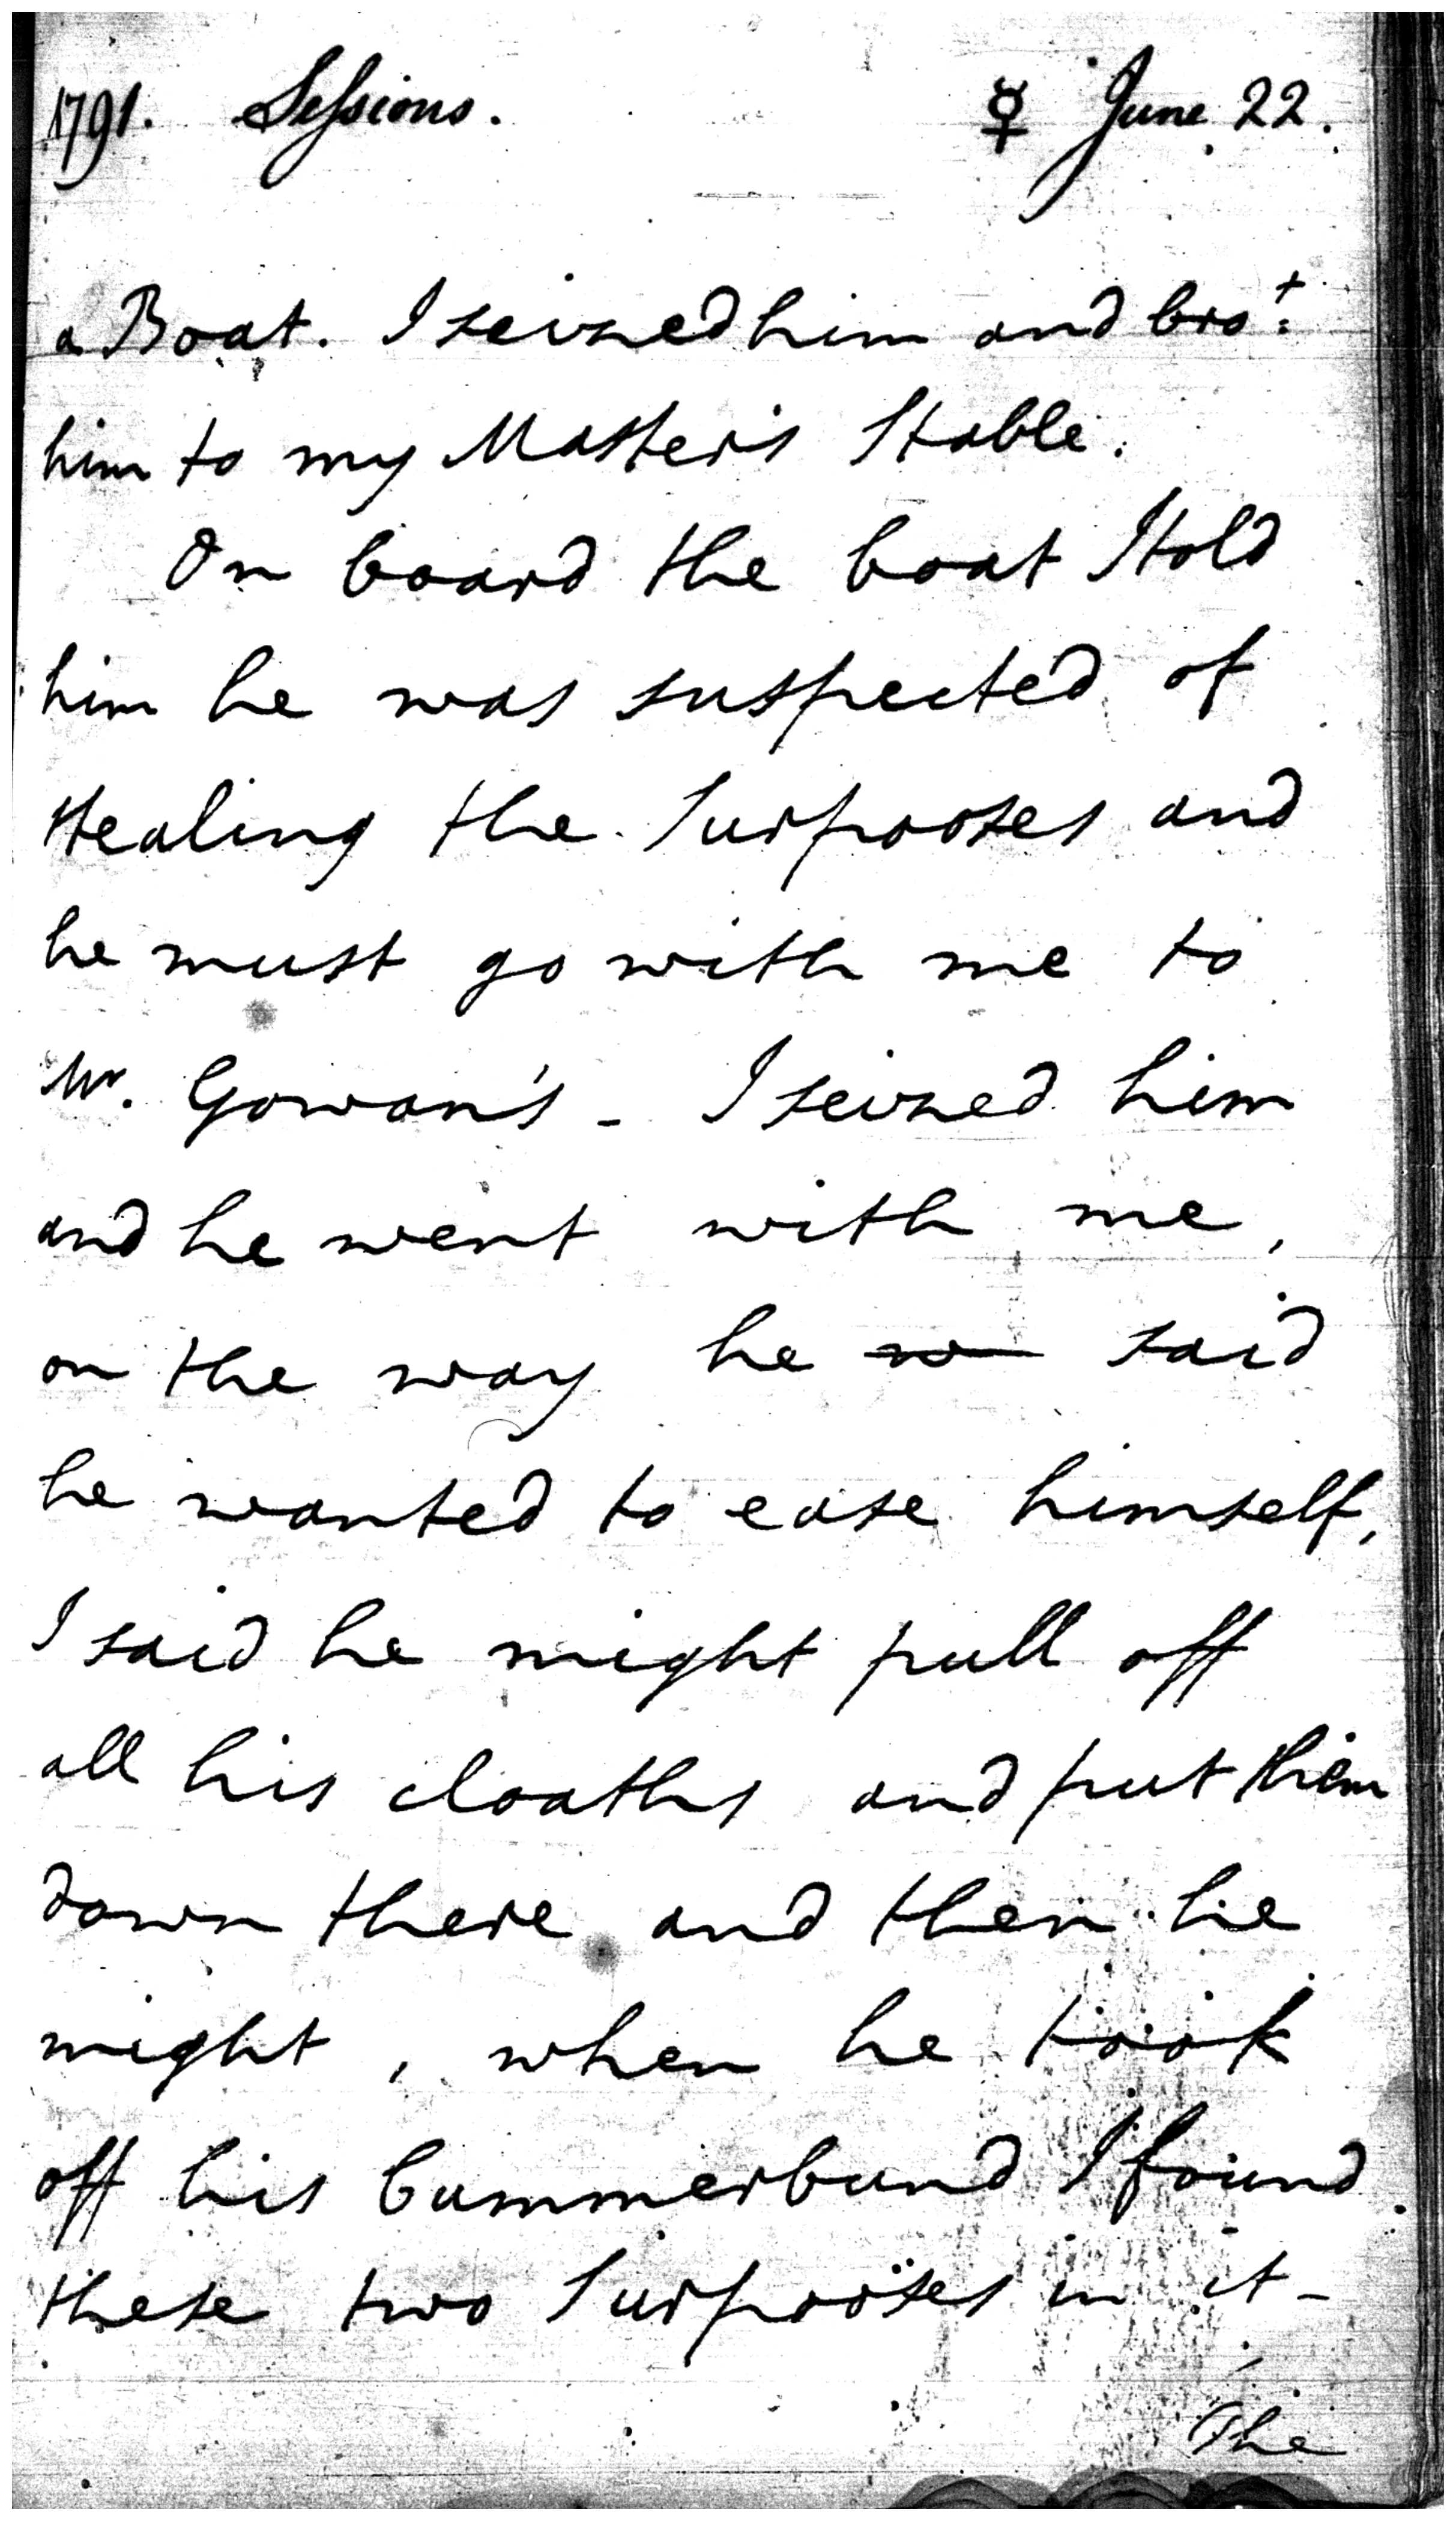 1791. Sessions. ☿ June 22.
a Boat. I seized him and bro.t
him to my Master's Stable.
On board the boat I told
him he was suspected of
stealing the Surpooses and
he must go with me to
Mr. Gowan's - I seized him
and he went with me,
on the way he w said
he wanted to ease himself,
I said he might pull off
all his cloaths and put them
down there and then he
might, when he took
off his Cummerbund I found
these two Surpooses in it -
The